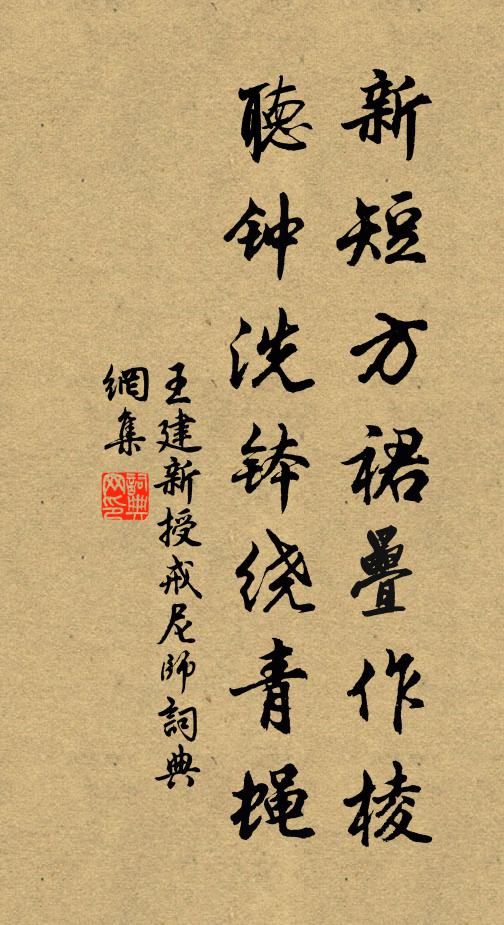 新短方裙疊作棱
聽钟洗钵绕青蝇
王建新授戒尼師詞典
網集
詞典
网印